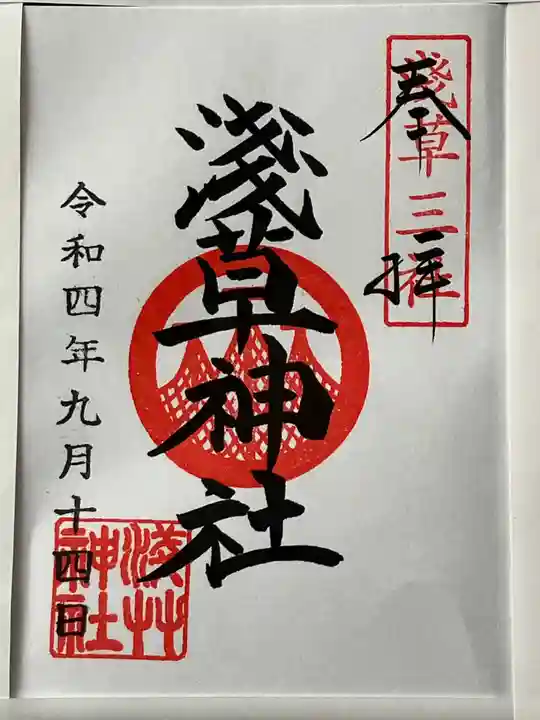 奉拝
淺草三社
淺草神社
令和四年九月十四日
淺艸神社